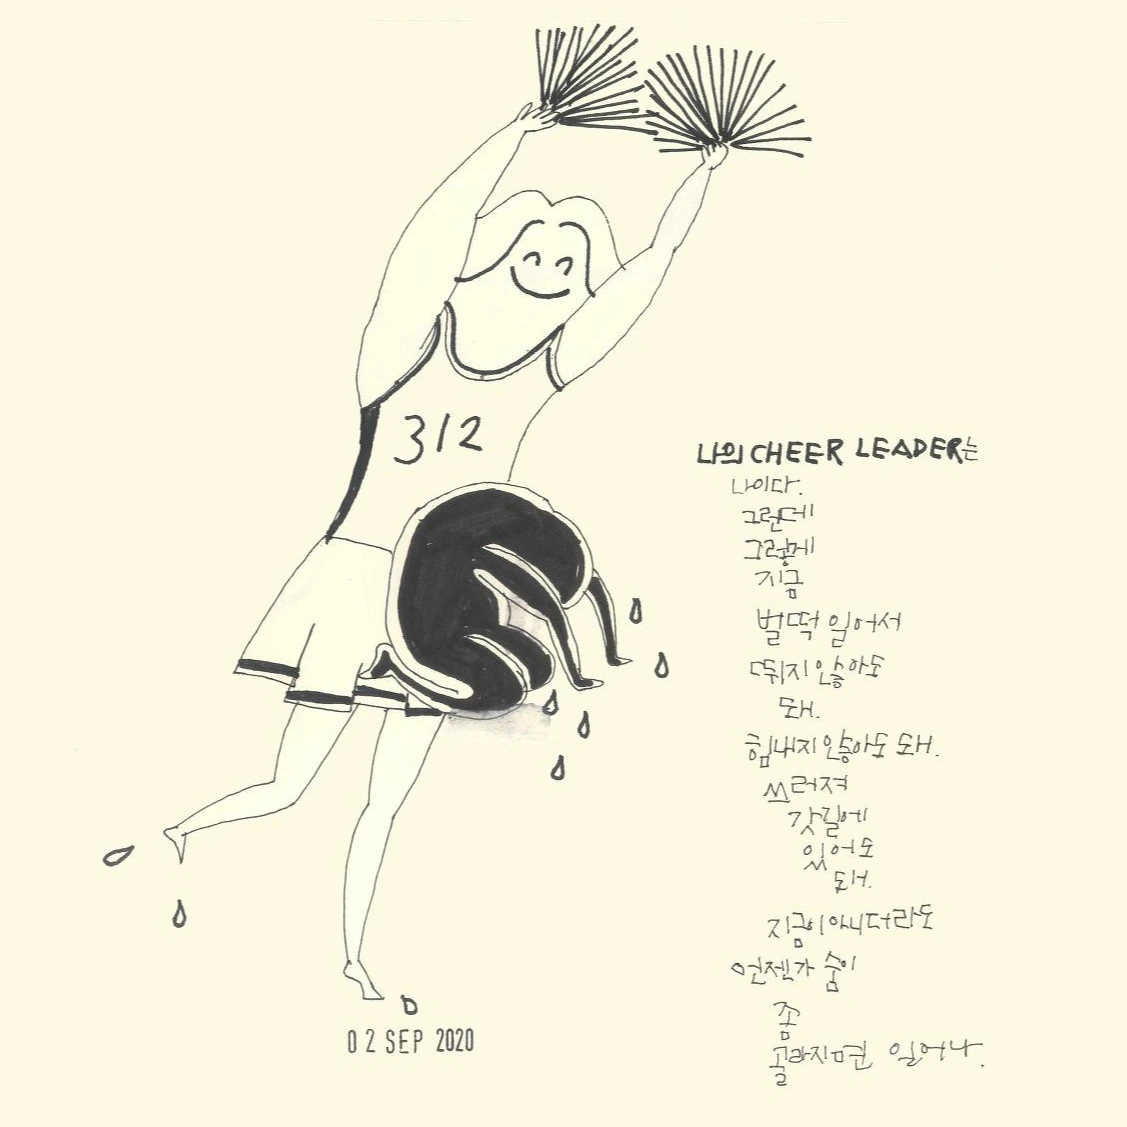 312
나의 CHEER LEADER는
나이다.
그런데
그렇게
지금
벌떡 일어서
뛰지 않아도
돼.
힘내지 않아도 돼.
쓰러져
갓길에
있어도
돼.
지금이 아니더라도
언젠가 숨이
좀
골라지면 일어나.
02 SEP 2020